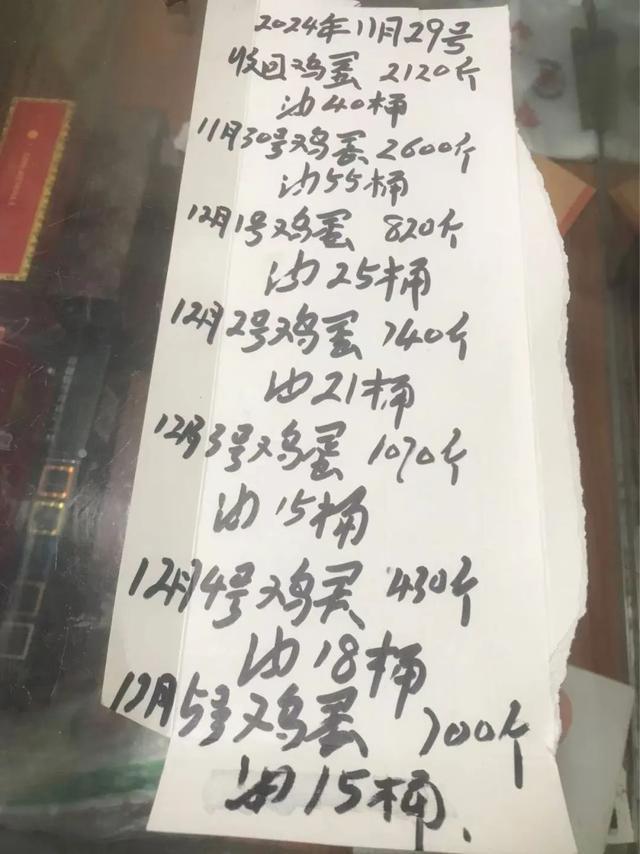 2024年11月29号
收回鸡蛋 2120个
油40桶
11月30号鸡蛋2600个
油55桶
12月1号鸡蛋 820个
油25桶
12月2号鸡蛋 740个
油21桶
12月3号鸡蛋 1070个
油15桶
12月4号鸡蛋 430个
油18桶
12月5号鸡蛋 700个
油15桶.